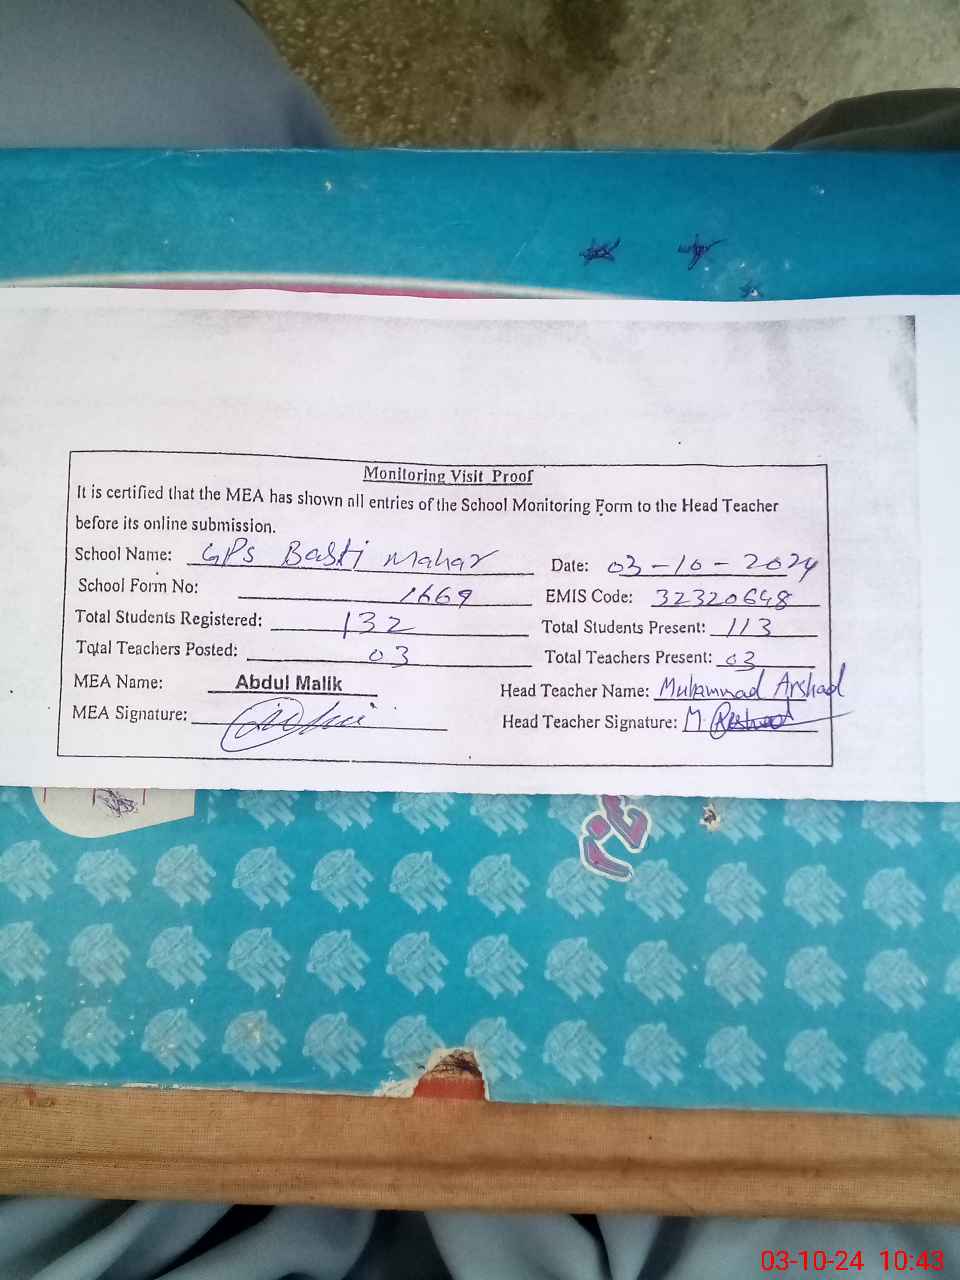 Monitoring Visit Proof
It is certified that the MEA has shown all entries of the School Monitoring Form to the Head Teacher
before its online submission.
School Name: GPS Basti Mahar Date: 03-10-2024
School Form No: 1669 EMIS Code: 32320648
Total Students Registered: 132 Total Students Present: 113
Total Teachers Posted: 03 Total Teachers Present: 03
MEA Name: Abdul Malik Head Teacher Name: Muhammad Arshad
MEA Signature: Head Teacher Signature: M. Arshad
03-10-24 10:43